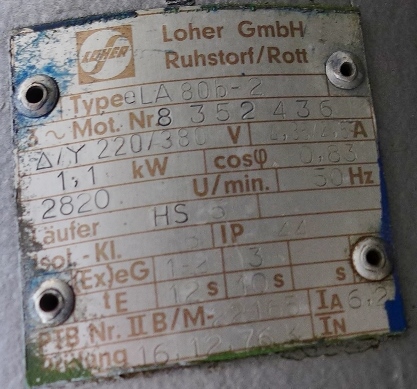 LOHER
Loher GmbH
Ruhstorf/Rott
Type eLA 80b-2
3 ~ Mot. Nr 8 352 436
Δ/Y 220/380 V A
1,1 kW cosφ 0,83
2820 U/min. 50 Hz
Läufer HS
Isol.-Kl. IP 44
(Ex)eG
tE 12 s 10 s s
PTB Nr. III B/M- IA/IN 6,2
Prüfung 16.12.76